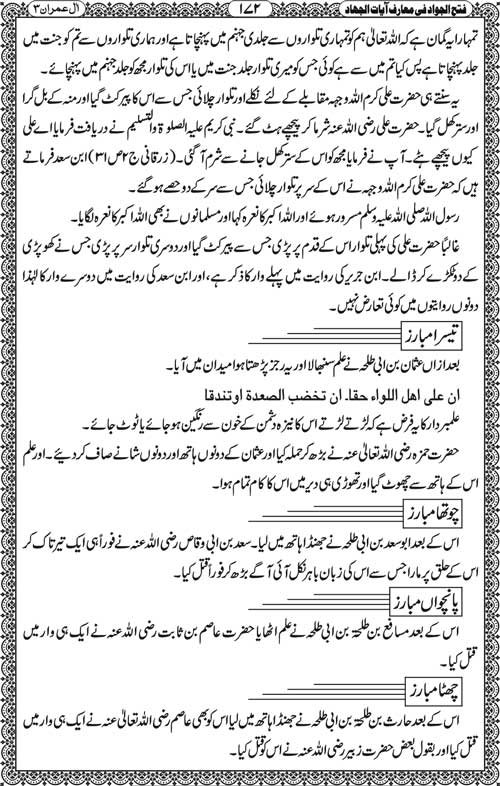 فتح الجواد فی معارف آیات الجهاد
۱۷۲
آل عمران ۳
تمہارا یہ گمان ہے کہ اللہ تعالیٰ ہم کو تمہاری تلواروں سے جلدی جہنم میں پہنچاتا ہے اور ہماری تلواروں سے تم کو جنت میں
جلد پہنچاتا ہے پس کیا تم میں سے ہے کوئی جس کو میری تلوار جلد جنت میں یا اس کی تلوار مجھ کو جلد جہنم میں پہنچائے۔
یہ سنتے ہی حضرت علی کرم اللہ وجہہ مقابلے کے لئے نکلے اور تلوار چلائی جس سے اس کا پیر کٹ گیا اور منہ کے بل گرا
اور ستر کھل گیا۔ حضرت علی رضی اللہ عنہ شرما کر پیچھے ہٹ گئے۔ نبی کریم علیہ الصلوۃ والتسلیم نے دریافت فرمایا اے علی
کیوں پیچھے ہٹے۔ آپ نے فرمایا مجھ کو اس کے ستر کھل جانے سے شرم آ گئی۔ (زرقانی ج ۲ ص ۳۱) ابن سعد فرماتے
ہیں کہ حضرت علی کرم اللہ وجہہ نے اس کے سر پر تلوار چلائی جس سے سر کے دو حصے ہو گئے۔
رسول اللہ صلی اللہ علیہ وسلم مسرور ہوئے اور اللہ اکبر کا نعرہ کہا اور مسلمانوں نے بھی اللہ اکبر کا نعرہ لگایا۔
غالباً حضرت علی کی پہلی تلوار اس کے قدم پر پڑی جس سے پیر کٹ گیا اور دوسری تلوار سر پر پڑی جس نے کھوپڑی
کے دو ٹکڑے کر ڈالے۔ ابن جریر کی روایت میں پہلے وار کا ذکر ہے، اور ابن سعد کی روایت میں دوسرے وار کا لہٰذا
دونوں روایتوں میں کوئی تعارض نہیں۔
تیسرا مبارز
بعد ازاں عثمان بن ابی طلحہ نے علم سنبھالا اور یہ رجز پڑھتا ہوا میدان میں آیا۔
ان علی اهل اللواء حقا۔ ان تخضب الصعدة اوتندقا
علمبردار کا یہ فرض ہے کہ لڑتے لڑتے اس کا نیزہ دشمن کے خون سے رنگین ہو جائے یا ٹوٹ جائے۔
حضرت حمزہ رضی اللہ تعالیٰ عنہ نے بڑھ کر حملہ کیا اور عثمان کے دونوں ہاتھ اور دونوں شانے صاف کر دیئے۔ اور علم
اس کے ہاتھ سے چھوٹ گیا اور تھوڑی ہی دیر میں اس کا کام تمام ہوا۔
چوتھا مبارز
اس کے بعد ابو سعد بن ابی طلحہ نے جھنڈا ہاتھ میں لیا۔ سعد بن ابی وقاص رضی اللہ عنہ نے فوراً ہی ایک تیر تاک کر
اس کے حلق پر مارا جس سے اس کی زبان باہر نکل آئی آگے بڑھ کر فوراً قتل کیا۔
پانچواں مبارز
اس کے بعد مسافع بن طلحہ بن ابی طلحہ نے علم اٹھایا حضرت عاصم بن ثابت رضی اللہ عنہ نے ایک ہی وار میں
قتل کیا۔
چھٹا مبارز
اس کے بعد حارث بن طلحۃ بن ابی طلحہ نے جھنڈا ہاتھ میں لیا اس کو بھی عاصم رضی اللہ تعالیٰ عنہ نے ایک ہی وار میں
قتل کیا اور بقول بعض حضرت زبیر رضی اللہ عنہ نے اس کو قتل کیا۔